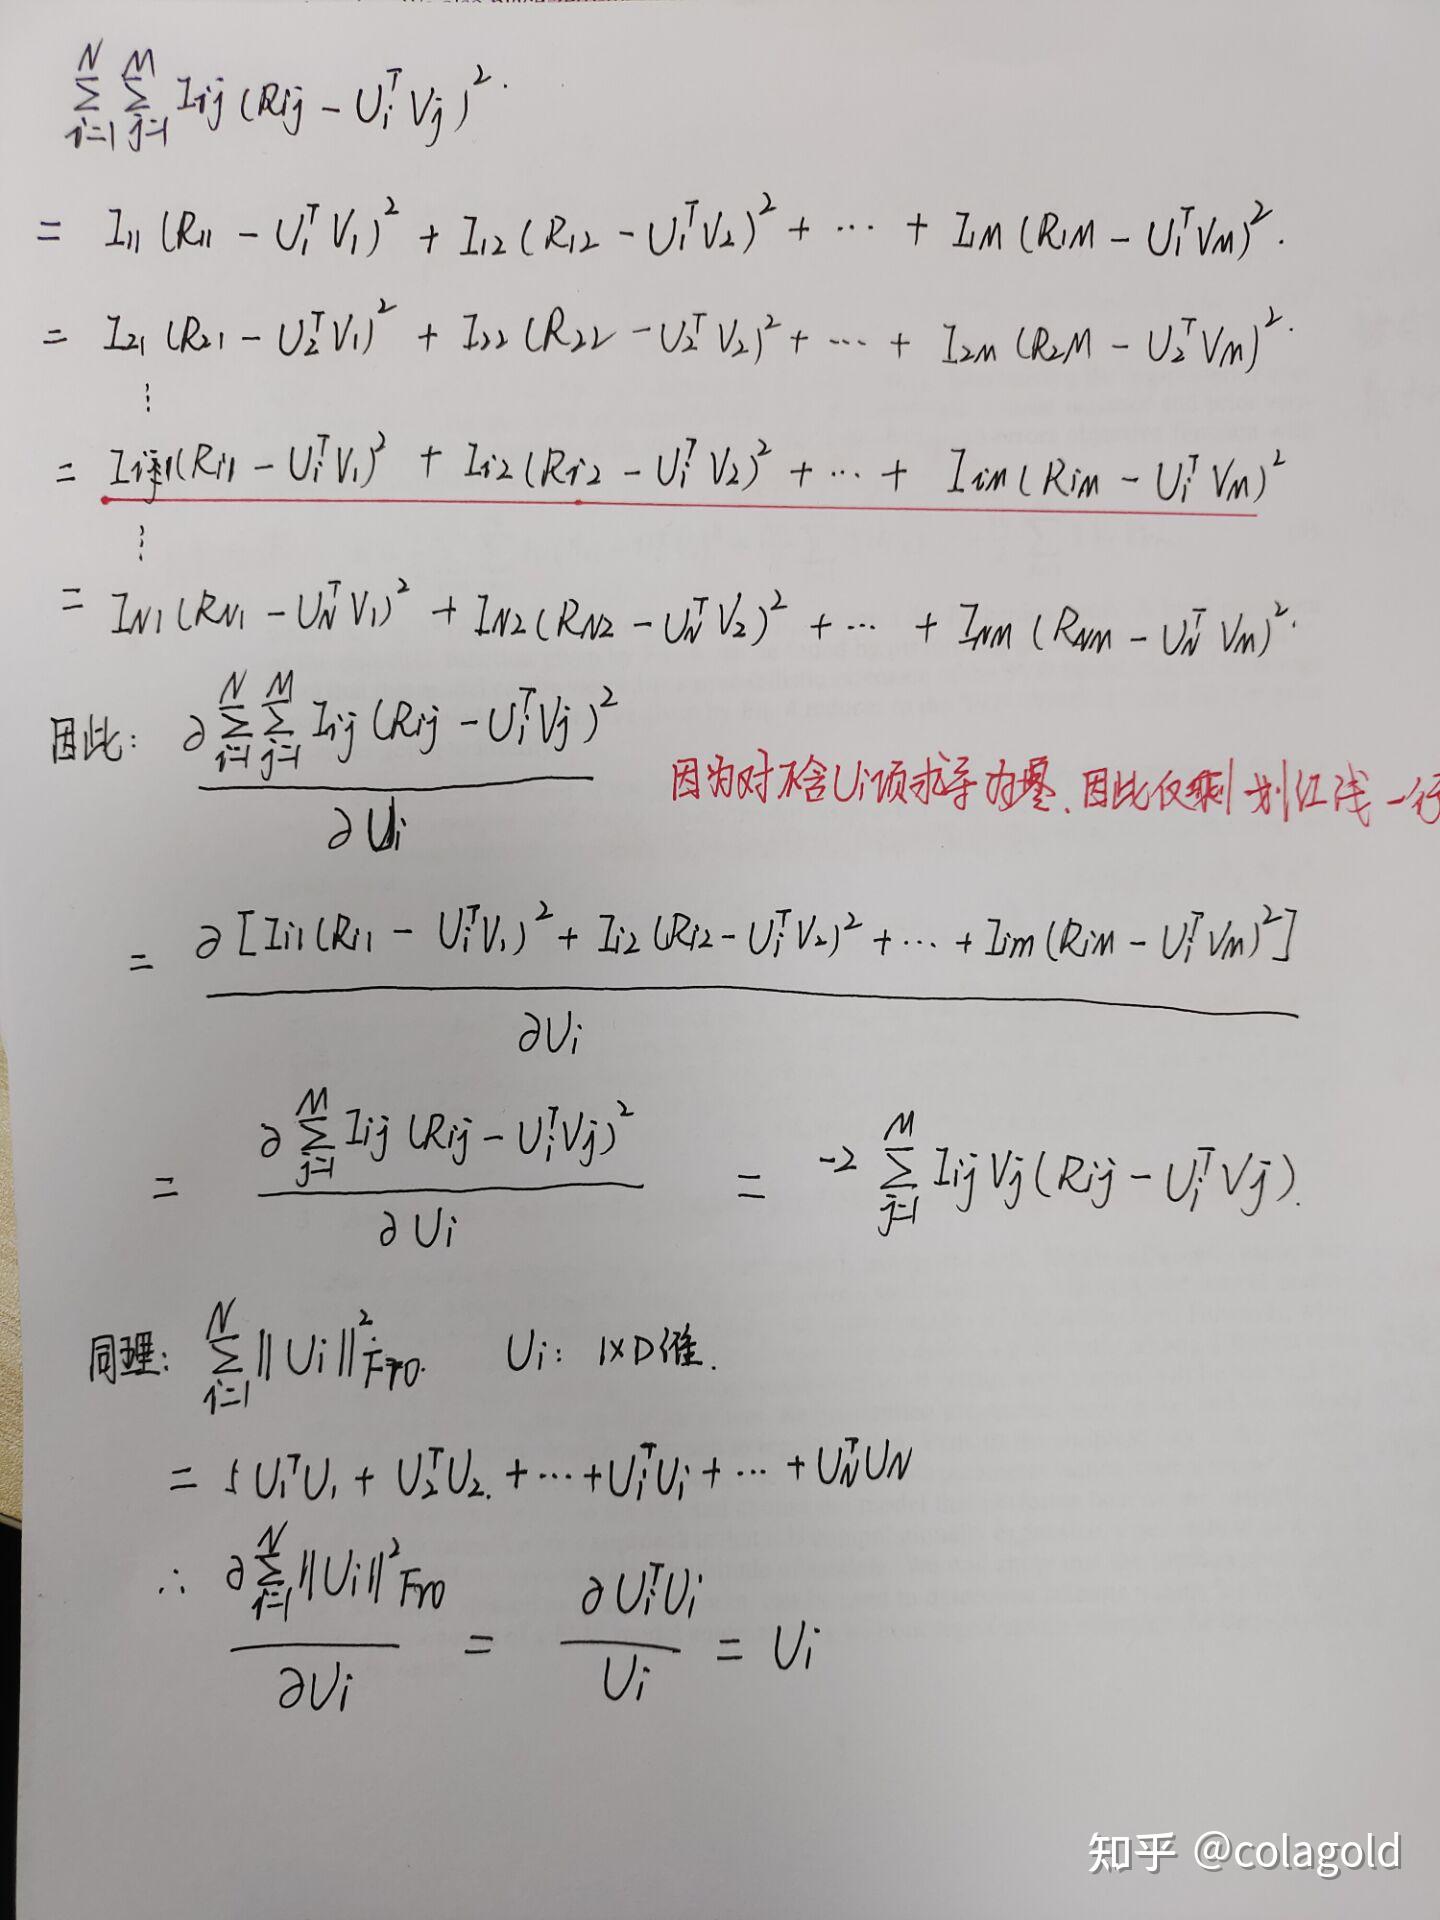 ∑_{i=1}^{N} ∑_{j=1}^{M} I_{ij} (R_{ij} - U_i^T V_j)^2.
= I_{11} (R_{11} - U_1^T V_1)^2 + I_{12} (R_{12} - U_1^T V_2)^2 + ... + I_{1M} (R_{1M} - U_1^T V_M)^2.
= I_{21} (R_{21} - U_2^T V_1)^2 + I_{22} (R_{22} - U_2^T V_2)^2 + ... + I_{2M} (R_{2M} - U_2^T V_M)^2.
⋮
= I_{i1} (R_{i1} - U_i^T V_1)^2 + I_{i2} (R_{i2} - U_i^T V_2)^2 + ... + I_{iM} (R_{iM} - U_i^T V_M)^2
⋮
= I_{N1} (R_{N1} - U_N^T V_1)^2 + I_{N2} (R_{N2} - U_N^T V_2)^2 + ... + I_{NM} (R_{NM} - U_N^T V_M)^2.
因此: ∂ ∑_{i=1}^{N} ∑_{j=1}^{M} I_{ij} (R_{ij} - U_i^T V_j)^2 / ∂U_i
因为对不含Ui项求导为零、因此仅剩划红线一行
= ∂ [I_{i1} (R_{i1} - U_i^T V_1)^2 + I_{i2} (R_{i2} - U_i^T V_2)^2 + ... + I_{iM} (R_{iM} - U_i^T V_M)^2] / ∂U_i
= ∂ ∑_{j=1}^{M} I_{ij} (R_{ij} - U_i^T V_j)^2 / ∂U_i = -2 ∑_{j=1}^{M} I_{ij} V_j (R_{ij} - U_i^T V_j).
同理: ∑_{i=1}^{N} ||U_i||^2_{Fro}. U_i: 1×D维.
= U_1^T U_1 + U_2^T U_2. + ... + U_i^T U_i + ... + U_N^T U_N
∴ ∂ ∑_{i=1}^{N} ||U_i||^2_{Fro} / ∂U_i = ∂ U_i^T U_i / U_i = U_i
知乎 @colagold